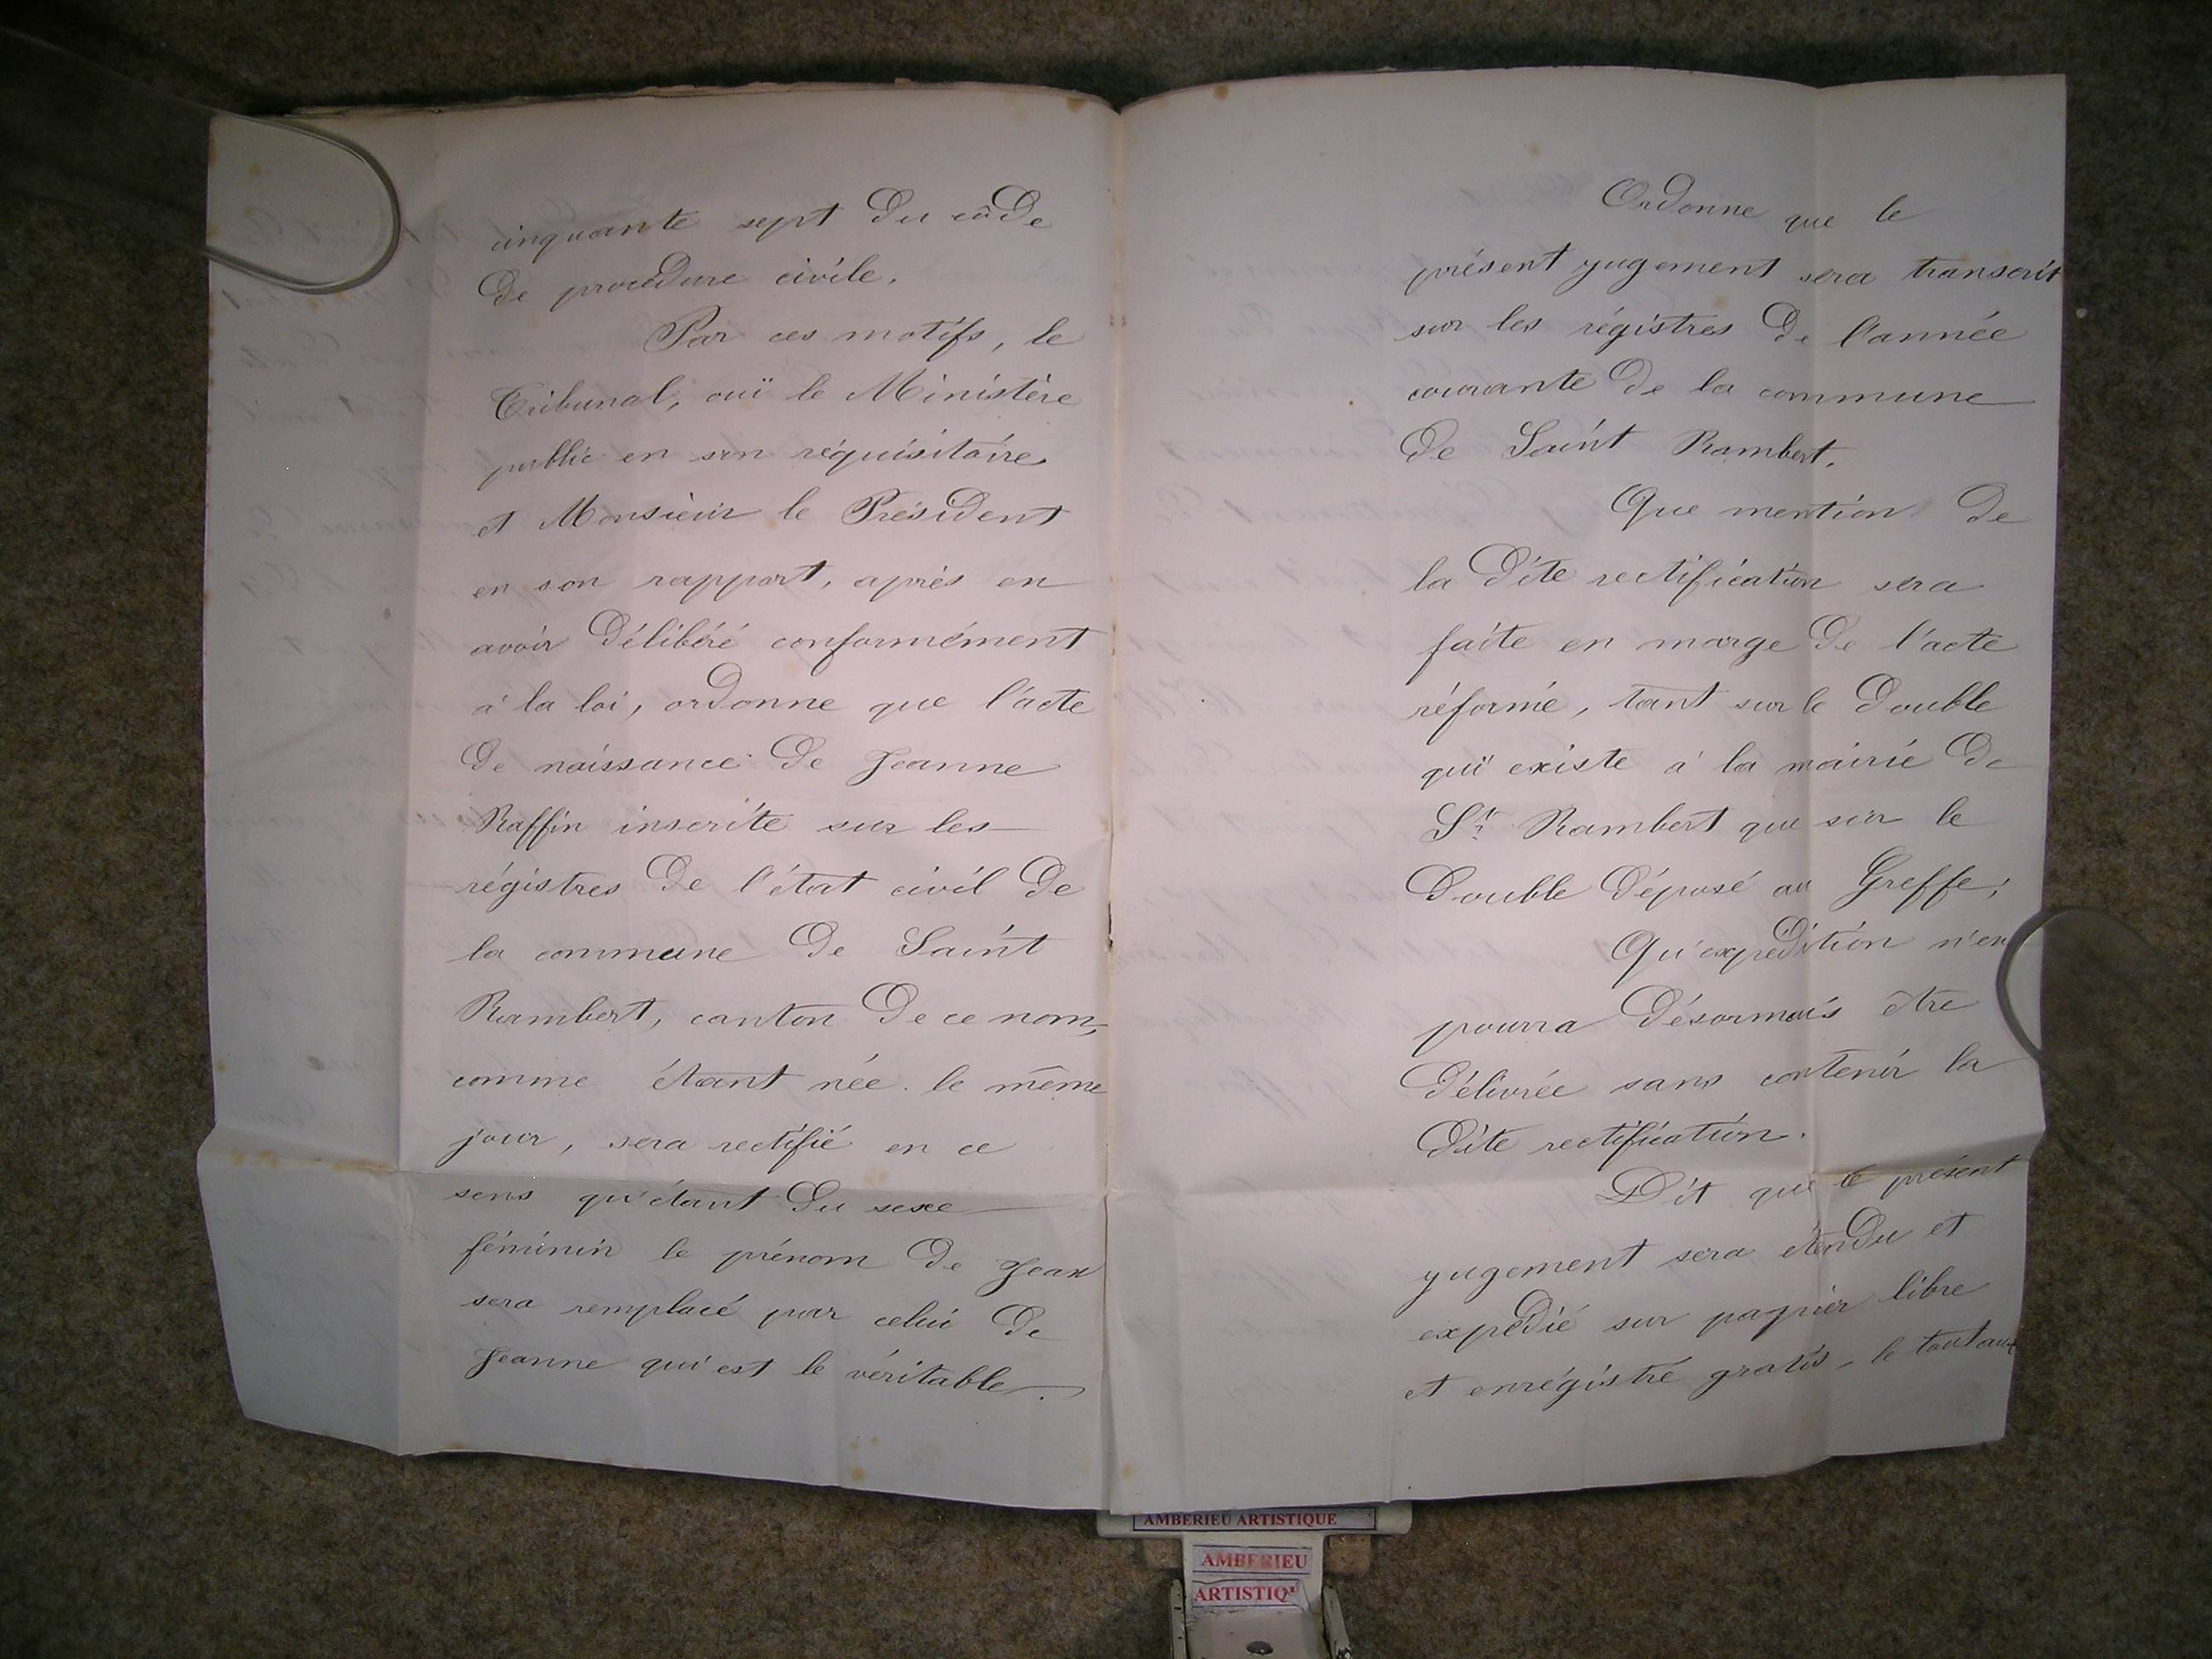 cinquante sept du côde
de procédure civile.
Par ces motifs, le
Tribunal, ouï le Ministère
public en son réquisitoire
et Monsieur le Président
en son rapport, après en
avoir délibéré conformément
à la loi, ordonne que l'acte
de naissance de Jeanne
Raffin inscrite sur les
régistres de l'état civil de
la commune de Saint
Rambert, canton de ce nom,
comme étant née le même
jour, sera rectifié en ce
sens qu'étant du sexe
féminin le prénom de Jean
sera remplacé par celui de
Jeanne qui est le véritable.
Ordonne que le
présent jugement sera transcrit
sur les régistres de l'année
courante de la commune
de Saint Rambert.
Que mention de
la dite rectification sera
faite en marge de l'acte
réformé, tant sur le double
qui existe à la mairie de
St. Rambert que sur le
double déposé au Greffe;
Qu'expédition n'en
pourra désormais être
délivrée sans contenir la
dite rectification.
Dit que le présent
jugement sera étendu et
expédié sur papier libre
et enrégistré gratis, le tout aux
AMBERIEU ARTISTIQUE
AMBERIEU
ARTISTIQ